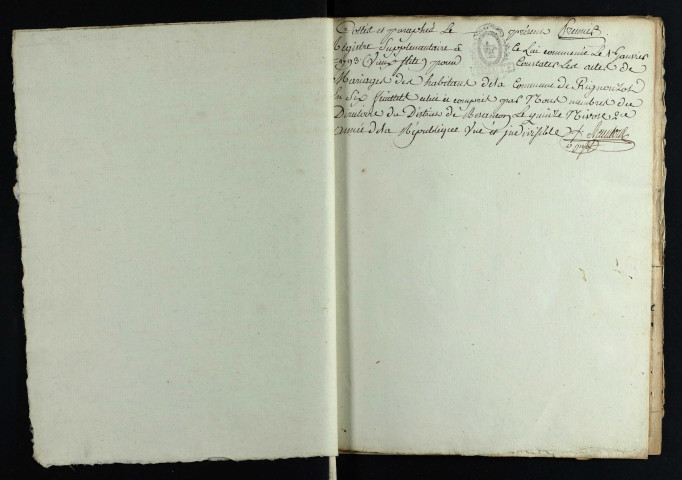 Cottés et paraphés le présent Premier
Registre Supplémentaire à celui commencé Le 1er Janvier
1793 (vieux stile) pour Constater Les actes de
Mariages des habitans de la Commune de Pugnonzot
En Six feuillets celui ci compris par Nous membres du
Directoire du District de Besançon Le quinze Nivose 2e
année de la République une et indivisible